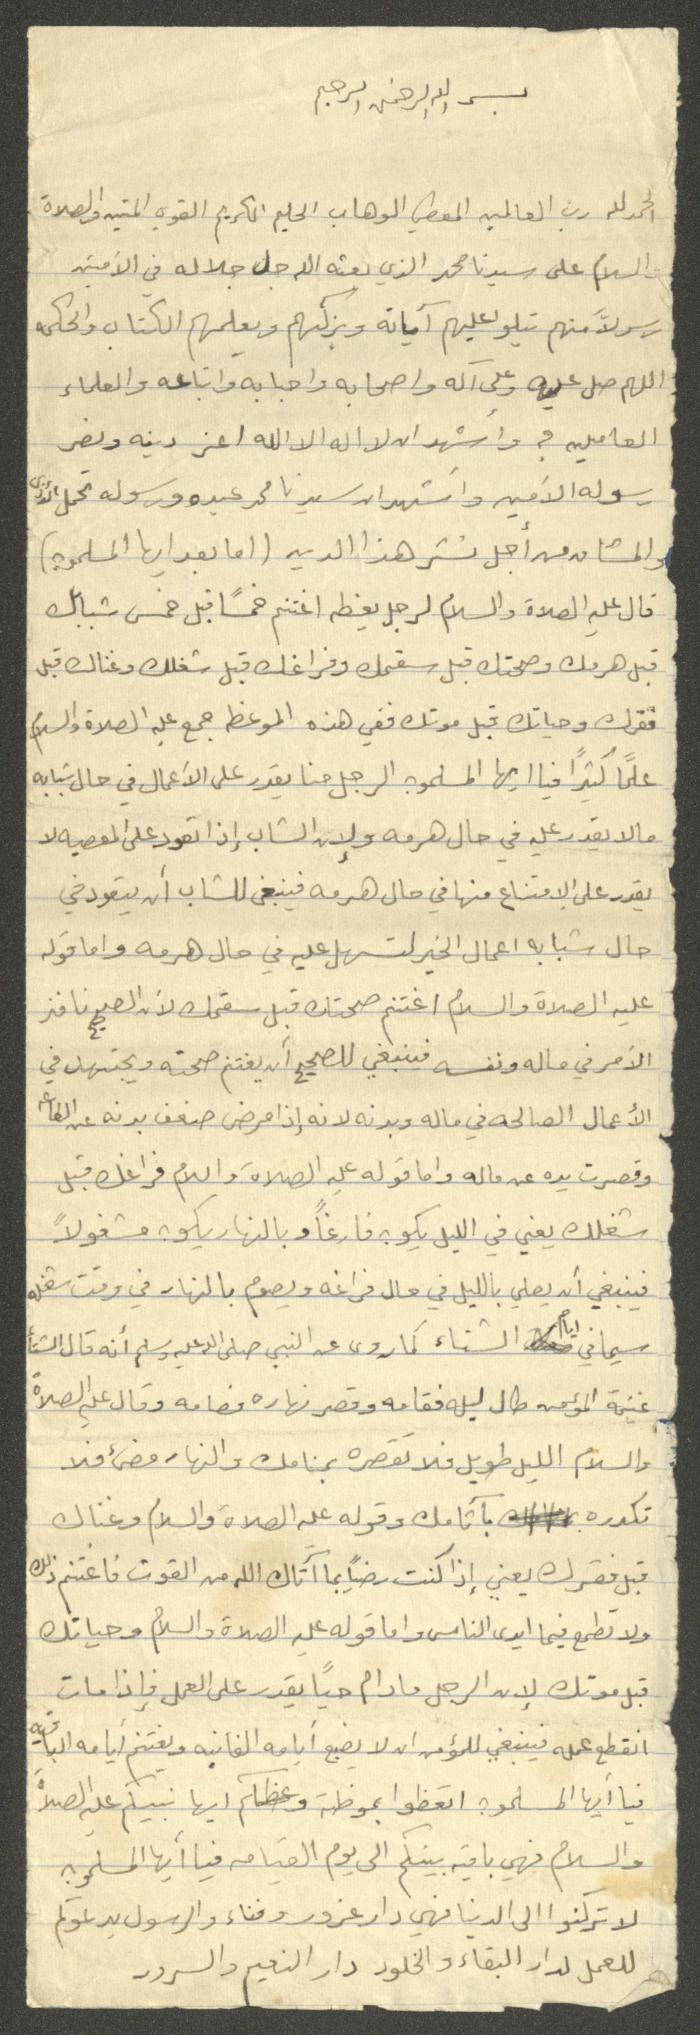 بسم الله الرحمن الرحيم
الحمد لله رب العالمين المعطي الوهاب الحليم الكريم القوي المتين والصلاة
والسلام على سيدنا محمد الذي بعثه الله جل جلاله في الأميين
رسولاً منهم يتلو عليهم آياته ويزكيهم ويعلمهم الكتاب والحكمه
اللهم صل عليه وعلى آله واصحابه واحبابه واتباعه والعلماء
العاملين وأشهد ان لا اله الا الله اعز دينه ونصر
رسوله الأمين وأشهد ان سيدنا محمد عبده ورسوله تحمل الأذى
والمشاق من أجل نشر هذا الدين (اما بعد ايها المسلمون)
قال عليه الصلاة والسلام لرجل يعظه اغتنم خمسًا قبل خمس شبابك
قبل هرمك وصحتك قبل سقمك وفراغك قبل شغلك وغناك قبل
فقرك وحياتك قبل موتك ففي هذه الموعظه جمع عليه الصلاة والسلام
علمًا كثيرًا فيا ايها المسلمون الرجل منا يقدر على الأعمال في حال شبابه
مالا يقدر عليه في حال هرمه ولإن الشاب إذا تعود على المعصيه لا
يقدر على الإمتناع منها في حال هرمه فينبغي للشاب أن يتعود في
حال شبابه اعمال الخير لتسهل عليه في حال هرمه واما قوله
عليه الصلاة والسلام اغتنم صحتك قبل سقمك لأن الصحيح نافذ
الأمر في ماله ونفسه فينبغي للصحيح أن يغتنم صحته ويجتهد في
الأعمال الصالحه في ماله وبدنه لانه إذا مرض ضعف بدنه عن الطاعه
وقصرت يده عن ماله واما قوله عليه الصلاة والسلام فراغك قبل
شغلك يعني في الليل يكون فارغاً وبالنهار يكون مشغولاً
فينبغي أن يصلي بالليل في حال فراغه ويصوم بالنهار في وقت شغله
سيما في ايام الشتاء كما روى عن النبي صلى الله عليه وسلم أنه قال الشتاء
غنيمة المؤمن طال ليله فقامه وقصر نهاره فصامه وقال عليه الصلاة
والسلام الليل طويل فلا تقصره بمنامك والنهار مضئ فلا
تكدره بآثامك وقوله عليه الصلاة والسلام وغناك
قبل فقرك يعني إذا كنت رضياً بما آتاك الله من القوت فاغتنم ذلك
ولا تطمع فيما ايدى الناس واما قوله عليه الصلاة والسلام وحياتك
قبل موتك لإن الرجل مادام حيًا يقدر على العمل فإذا مات
انقطع عمله فينبغي للمؤمن ان لا يضيع أيامه الفانيه ويغتنم أيامه الباقيه
فيا أيها المسلمون اتعظوا بموعظة وعظكم ايها نبيكم عليه الصلاة
والسلام فهي باقيه بينكم الى يوم القيامه فيا أيها المسلمون
لا تركنوا الى الدنيا فهي دار غرور وفناء والرسول يدعوكم
للعمل لدار البقاء والخلود دار النعيم والسرور